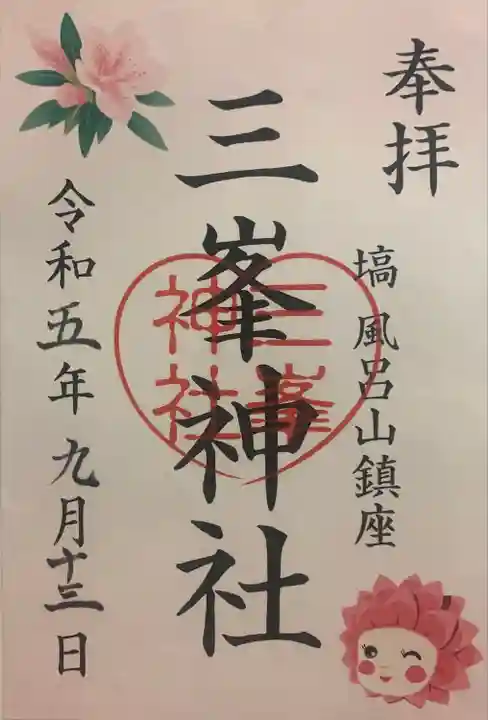 奉拝
塙 風呂山鎮座
三峯神社
三峯
神社
令和五年 九月十三日